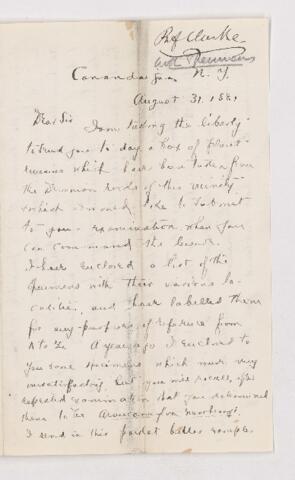 Prof Clarke.
Canandaigua N.Y.
August 31. 188
Dear Sir
I am taking the liberty
to send you to day a box of plant
remains which have been taken from
the Devonian rocks of this vicinity
which I would like to submit
to your examination when you
can command the leisure.
I have enclosed a list of the
specimens with their various lo-
calities, and have labelled them
for any purpose of reference from
A to Z. A year ago I enclosed to
you some specimens which were very
unsatisfactory. but you will recall, after
repeated examination that you determined
them to be
I send in this packet better examples